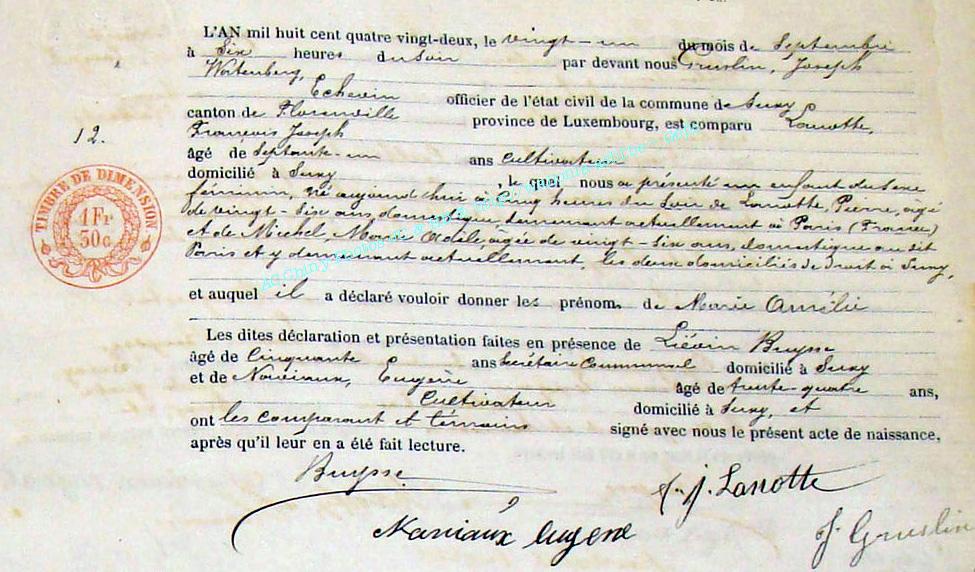 L'AN mil huit cent quatre vingt-deux, le vingt-un du mois de Septembre
à Six heures du soir par devant nous Gruslin, Joseph
Echevin officier de l'état civil de la commune de Suxy
canton de Florenville province de Luxembourg, est comparu Lanotte,
12.
François Joseph
âgé de Septante-un ans Cultivateur
domicilié à Suxy, le quel nous a présenté un enfant du sexe
féminin, né aujourd'hui à Cinq heures du Soir de Lanotte, Pierre, âgé
de vingt-Six ans, domestique, demeurant actuellement à Paris (France)
et de Michel, Marie Adèle, âgée de vingt-Six ans, domestique au dit
Paris et y demeurant actuellement, les deux domiciliés de droit à Suxy,
et auquel il a déclaré vouloir donner les prénom. de Marie Amélie
Les dites déclaration et présentation faites en présence de Liévin Buysse
âgé de Cinquante ans Secrétaire Communal domicilié à Suxy
et de Eugène âgé de trente-quatre ans,
Cultivateur domicilié à Suxy, et
ont les comparant et témoins signé avec nous le présent acte de naissance,
après qu'il leur en a été fait lecture.
Buysse
f. j. Lanotte
Eugene
J. Gruslin
TIMBRE DE DIMENSION
1 Fr
30 c.